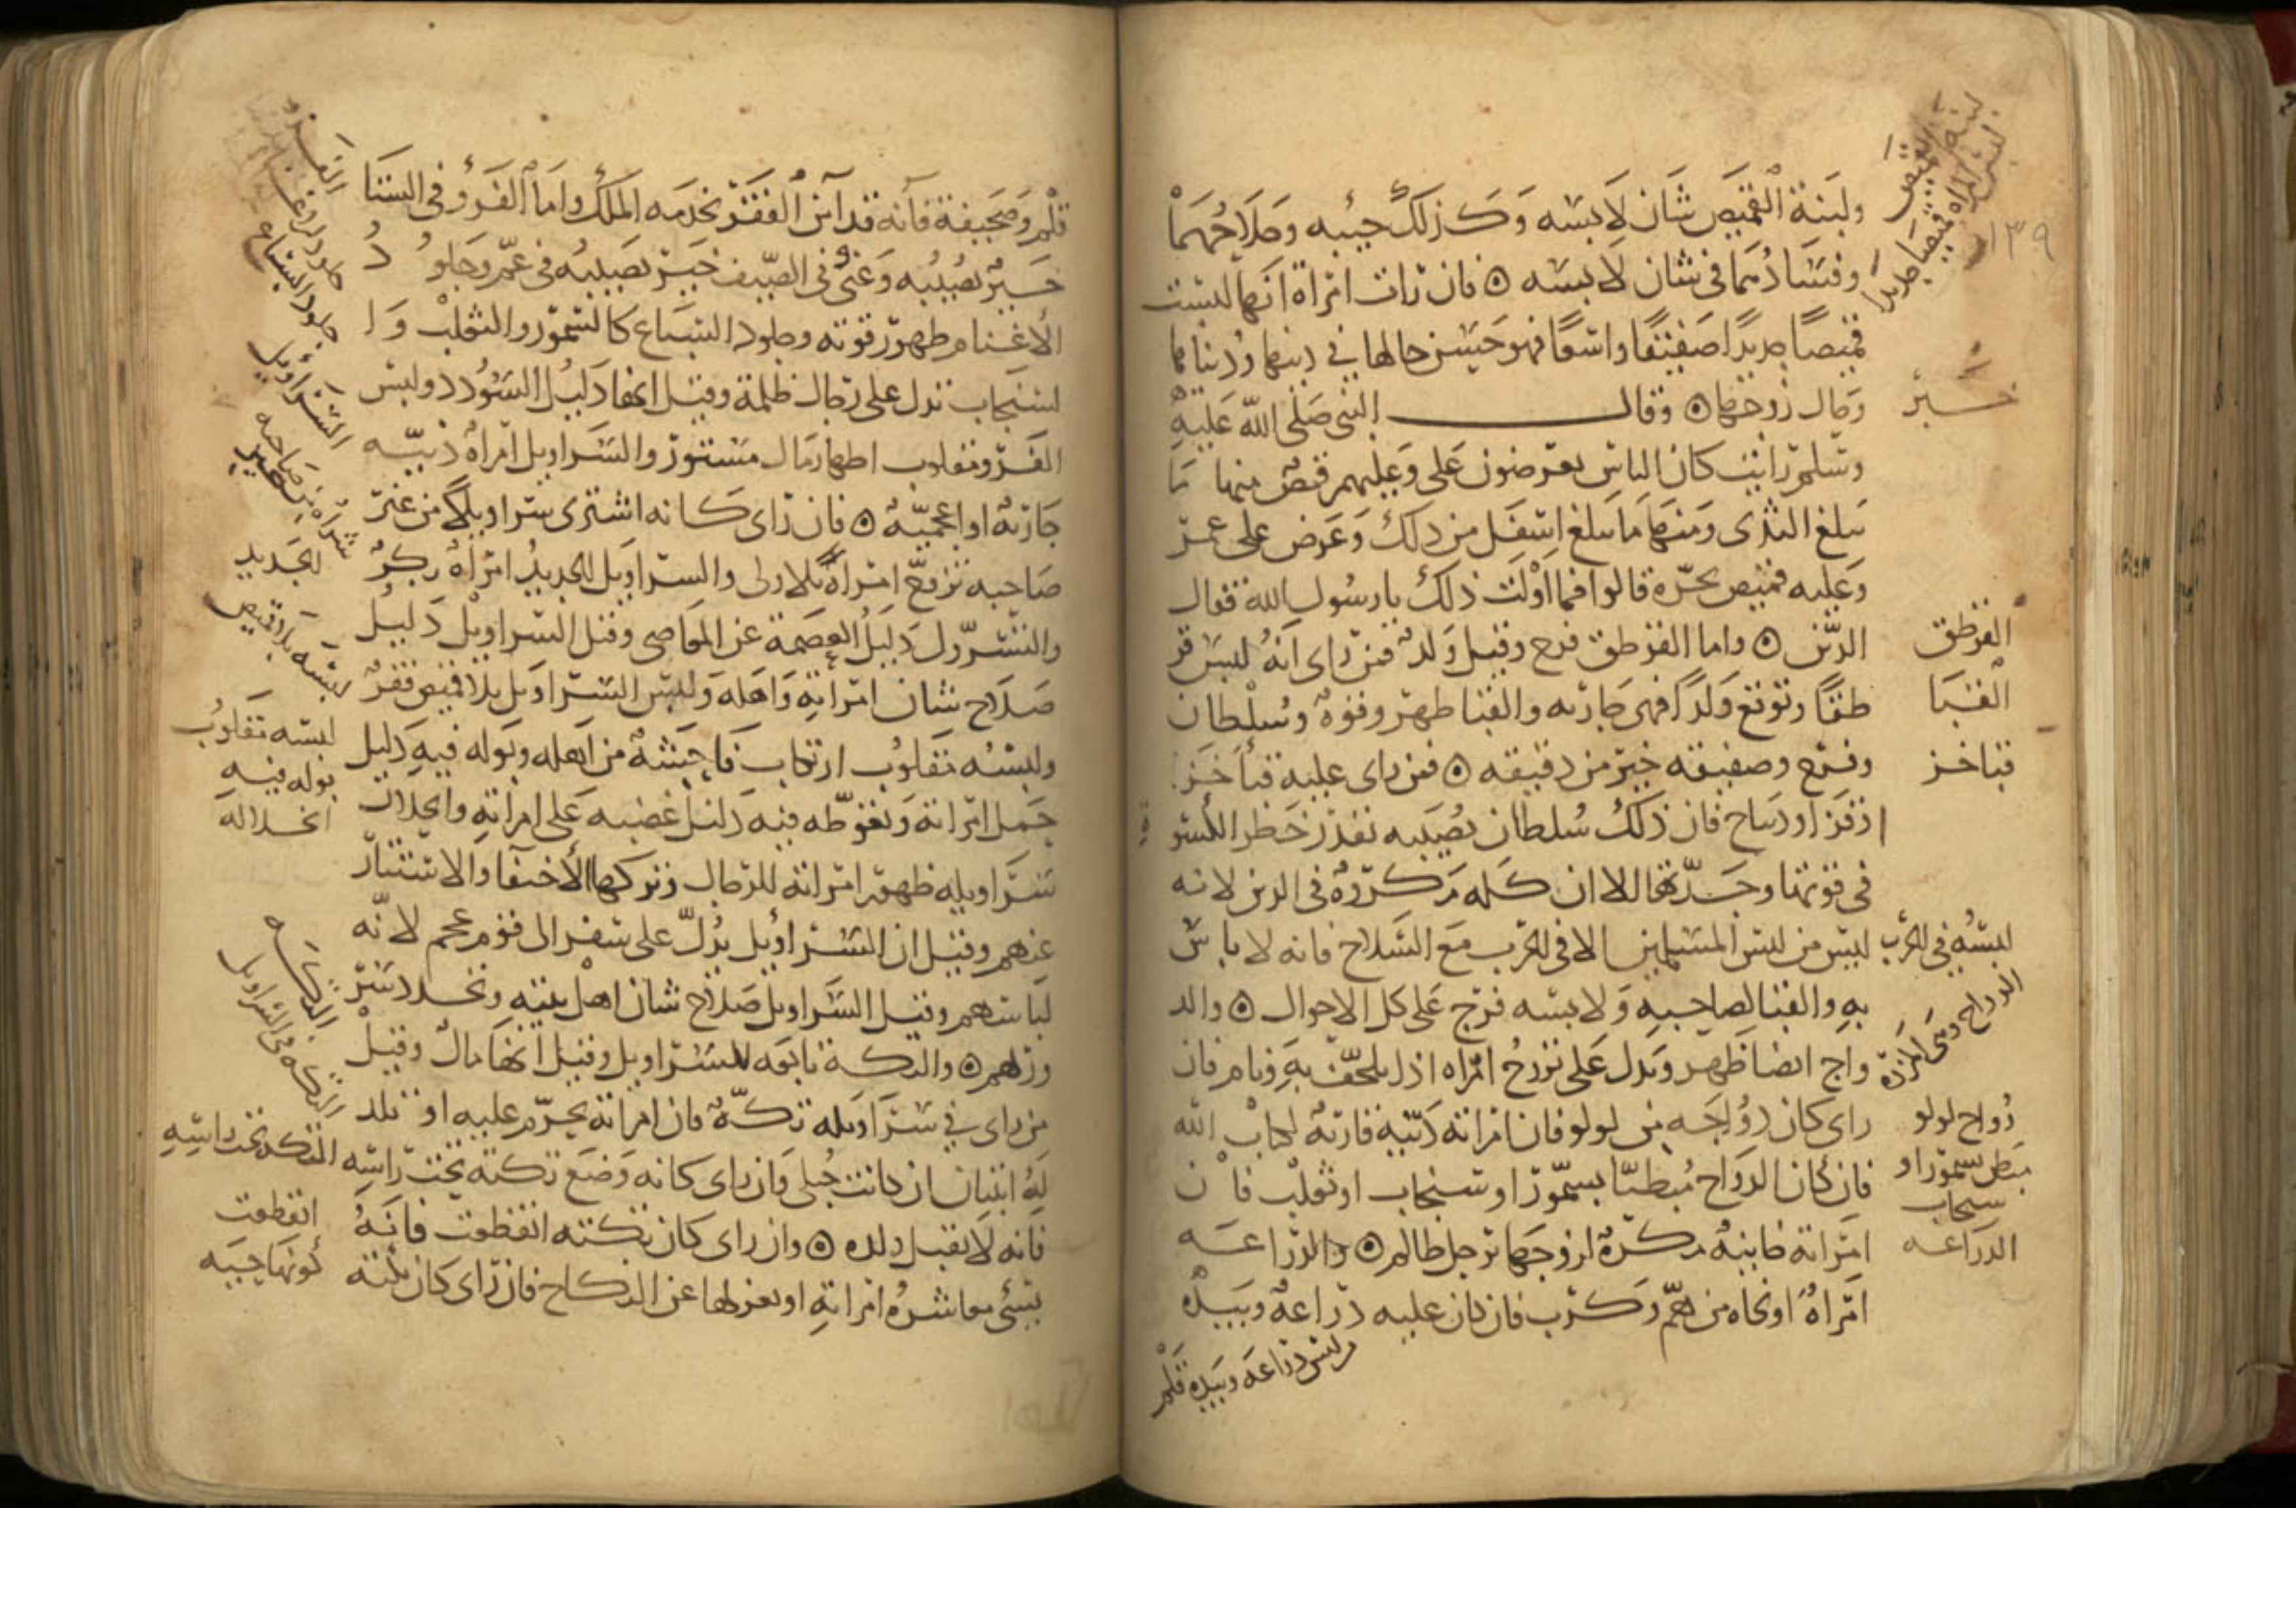 ولبنة القميص شان لابسه وكذلك جيبه وصلاحهما
وفسادهما في شان لابسه ۞ فان رات امراة انها لبست
قميصا جديدا صفيقا واسعا فهو حسن حالها في دينها ودنياها
وحال زوجها ۞ وقال النبي صلى الله عليه
وسلم رايت كان الناس يعرضون علي وعليهم قمص منها ما
يبلغ الثدي ومنها ما يبلغ اسفل من ذلك وعرض علي عمر
وعليه قميص يجره قالوا فما اولت ذلك يا رسول الله فقال
الدين ۞ واما القرطق فرح وقيل ولد فمن راى انه لبس قر
طقا وتوقع ولدا فهي جارية والقبا ظهر وقوة وسلطان
وفرج وصفيقه خير من دقيقه ۞ فمن راى عليه قبا خز
او قز او ديباج فان ذلك سلطان يصيبه بقدر خطر الكسوة
في قوتها وجدتها الا ان كله مكروه في الدين لانه
ليس من لبس المسلمين الا في الحرب مع السلاح فانه لا باس
به والقبا لصاحبه ولابسه فرج على كل الاحوال ۞ والد
واج ايضا ظهر ويدل على تزوج امراه اذا يلحف به ونام فان
راى كان دواجه من لولو فان امراته دينة قارئة لكتاب الله
فان كان الدواج مبطنا بسمور او سنجاب او ثعلب فان
امراته خاينة مكرة لزوجها برجل ظالم ۞ والدراعه
امراة او نجاه من هم وكرب فان كان عليه دراعة وبيده
من لبس دراعه وبيده قلم
لبنة القميص
لبس المراه قميصا جديدا
١٣٩
خبر
القرطق
القبا
قبا خز
لبسه في الحرب
الدواج
دواج لولو
مبطن سمور او
سنجاب
الدراعه
قلم وصحيفة فانه قد امن الفقر بخدمه الملك واما الفرو في الشتا
خير يصيبه وغنى في الصيف خير يصيبه في غم وجلود
الاغنام ظهور قوته وجلود السباع كالسمور والثعلب وا
لسنجاب تدل على رجال ظلمة وقيل انها دليل السودد ولبس
الفرو مقلوب اظهار مال مستور والسراويل امراة دنية
جارية او اعجمية ۞ فان راى كانه اشترى سراويلا من غير
صاحبه تزوج امراة بلا ولي والسراويل الجديد امراة بكر
والتسرول دليل العصمة عن المعاصي وقيل السراويل دليل
صلاح شان امراته واهله ولبس السراويل بلا قميص فقر
ولبسه مقلوب ارتكاب فاحشة من اهله وبوله فيه دليل
حمل امراته وتغوطه فيه دليل غضبه على امراته وانحلال
سراويله ظهور امراته للرجال وتركها الاختفا والاستتار
عنهم وقيل ان السراويل يدل على سفر الى قوم عجم لانه
لباسهم وقيل السراويل صلاح شان اهل بيته وتجدد سر
ورهم ۞ والتكة تابعه للسراويل وقيل انها مال وقيل
من راى في سراويله تكة فان امراته يحرم عليه او تلد
له ابنتان ان كانت حبلى وان راى كانه وضع تكته تحت راسه
فانه لا يقبل ولده ۞ وان راى كان تكته انقطعت فانه
يسئ معاشرة امراته او يعزلها عن النكاح فان راى كان تكته
الفرو
جلود السباع
السراويل
الجديد
لبسه بلا قميص
لبسه مقلوب
بوله فيه
انحلاله
التكه
التكه في السراويل
التكه تحت راسه
انقطعت
كونها حيه